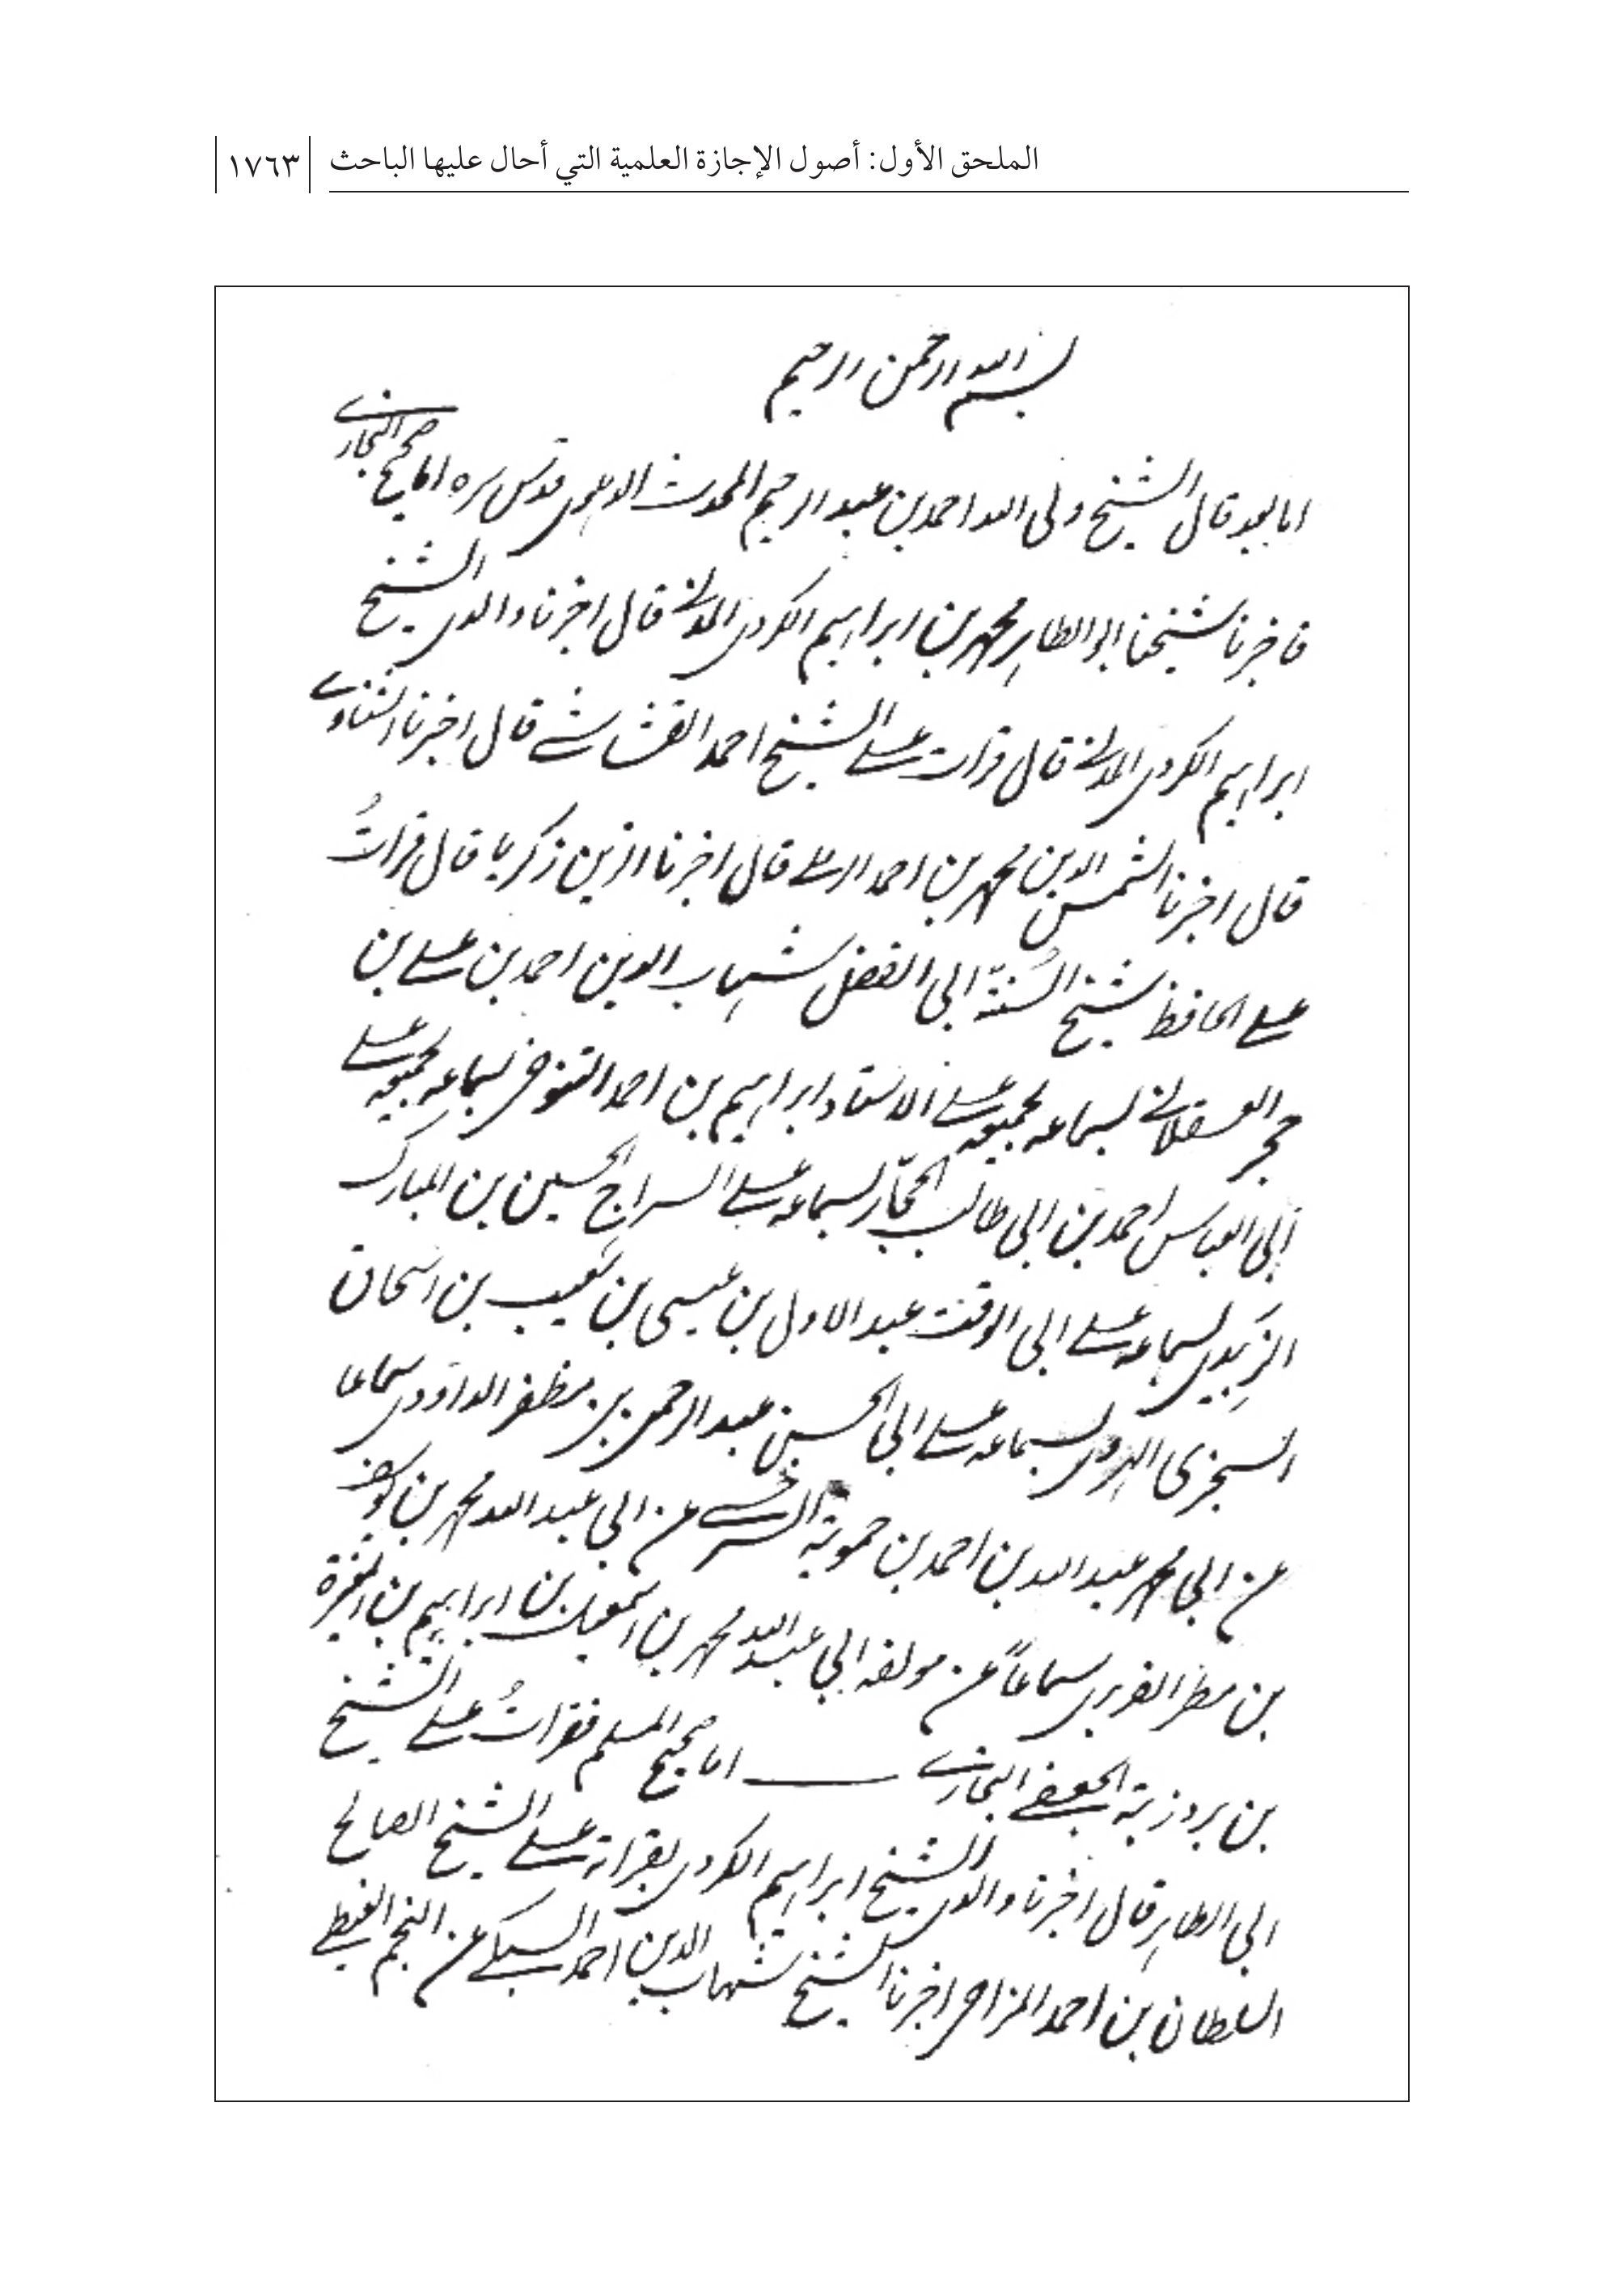 الملحق الأول: أصول الإجازة العلمية التي أحال عليها الباحث ١٧٦٣
بسم الله الرحمن الرحيم
اما بعد قال الشيخ ولى الله احمد بن عبد الرحيم المحدث الدهلوى قدس سره اما صحيح البخارى
فاخبرنا شيخنا ابو الطاهر محمد بن ابراهيم الكردى المدنى قال اخبرنا والدى الشيخ
ابراهيم الكردى المدنى قال قرات على الشيخ احمد القشاشى قال اخبرنا الشناوى
قال اخبرنا الشمس الدين محمد بن احمد الرملى قال اخبرنا الزين زكريا قال قراتُ
على الحافظ شيخ السُنّة ابى الفضل شهاب الدين احمد بن على بن
حجر العسقلانى بسماعه لجميعه على الاستاد ابراهيم بن احمد التنوخى بسماعه لجميعه على
ابى العباس احمد بن ابى طالب الحجّار بسماعه على السراج الحسين بن المبارك
الزَبيدى بسماعه على ابى الوقت عبد الاول بن عيسى بن شعيب بن اسحاق
السجزى الهروى بسماعه على ابى الحسن عبد الرحمن بن مظفر الداودى سماعا
عن ابى محمد عبد الله بن احمد بن حموية السرخسى عن ابى عبد الله محمد بن يوسف
بن مطر الفربرى سماعاً عن مولفه ابى عبد الله محمد بن اسمعيل بن ابراهيم بن المغيرة
بن بردزبة الجعفى البخارى ـــ اما صحيح المسلم فقراتُ على الشيخ
ابى الطاهر قال اخبرنا والدى الشيخ ابراهيم الكردى بقراته على الشيخ الصالح
السلطان بن احمد المزاحى اخبرنا الشيخ شهاب الدين احمد السبكى عن النجم الغيطى